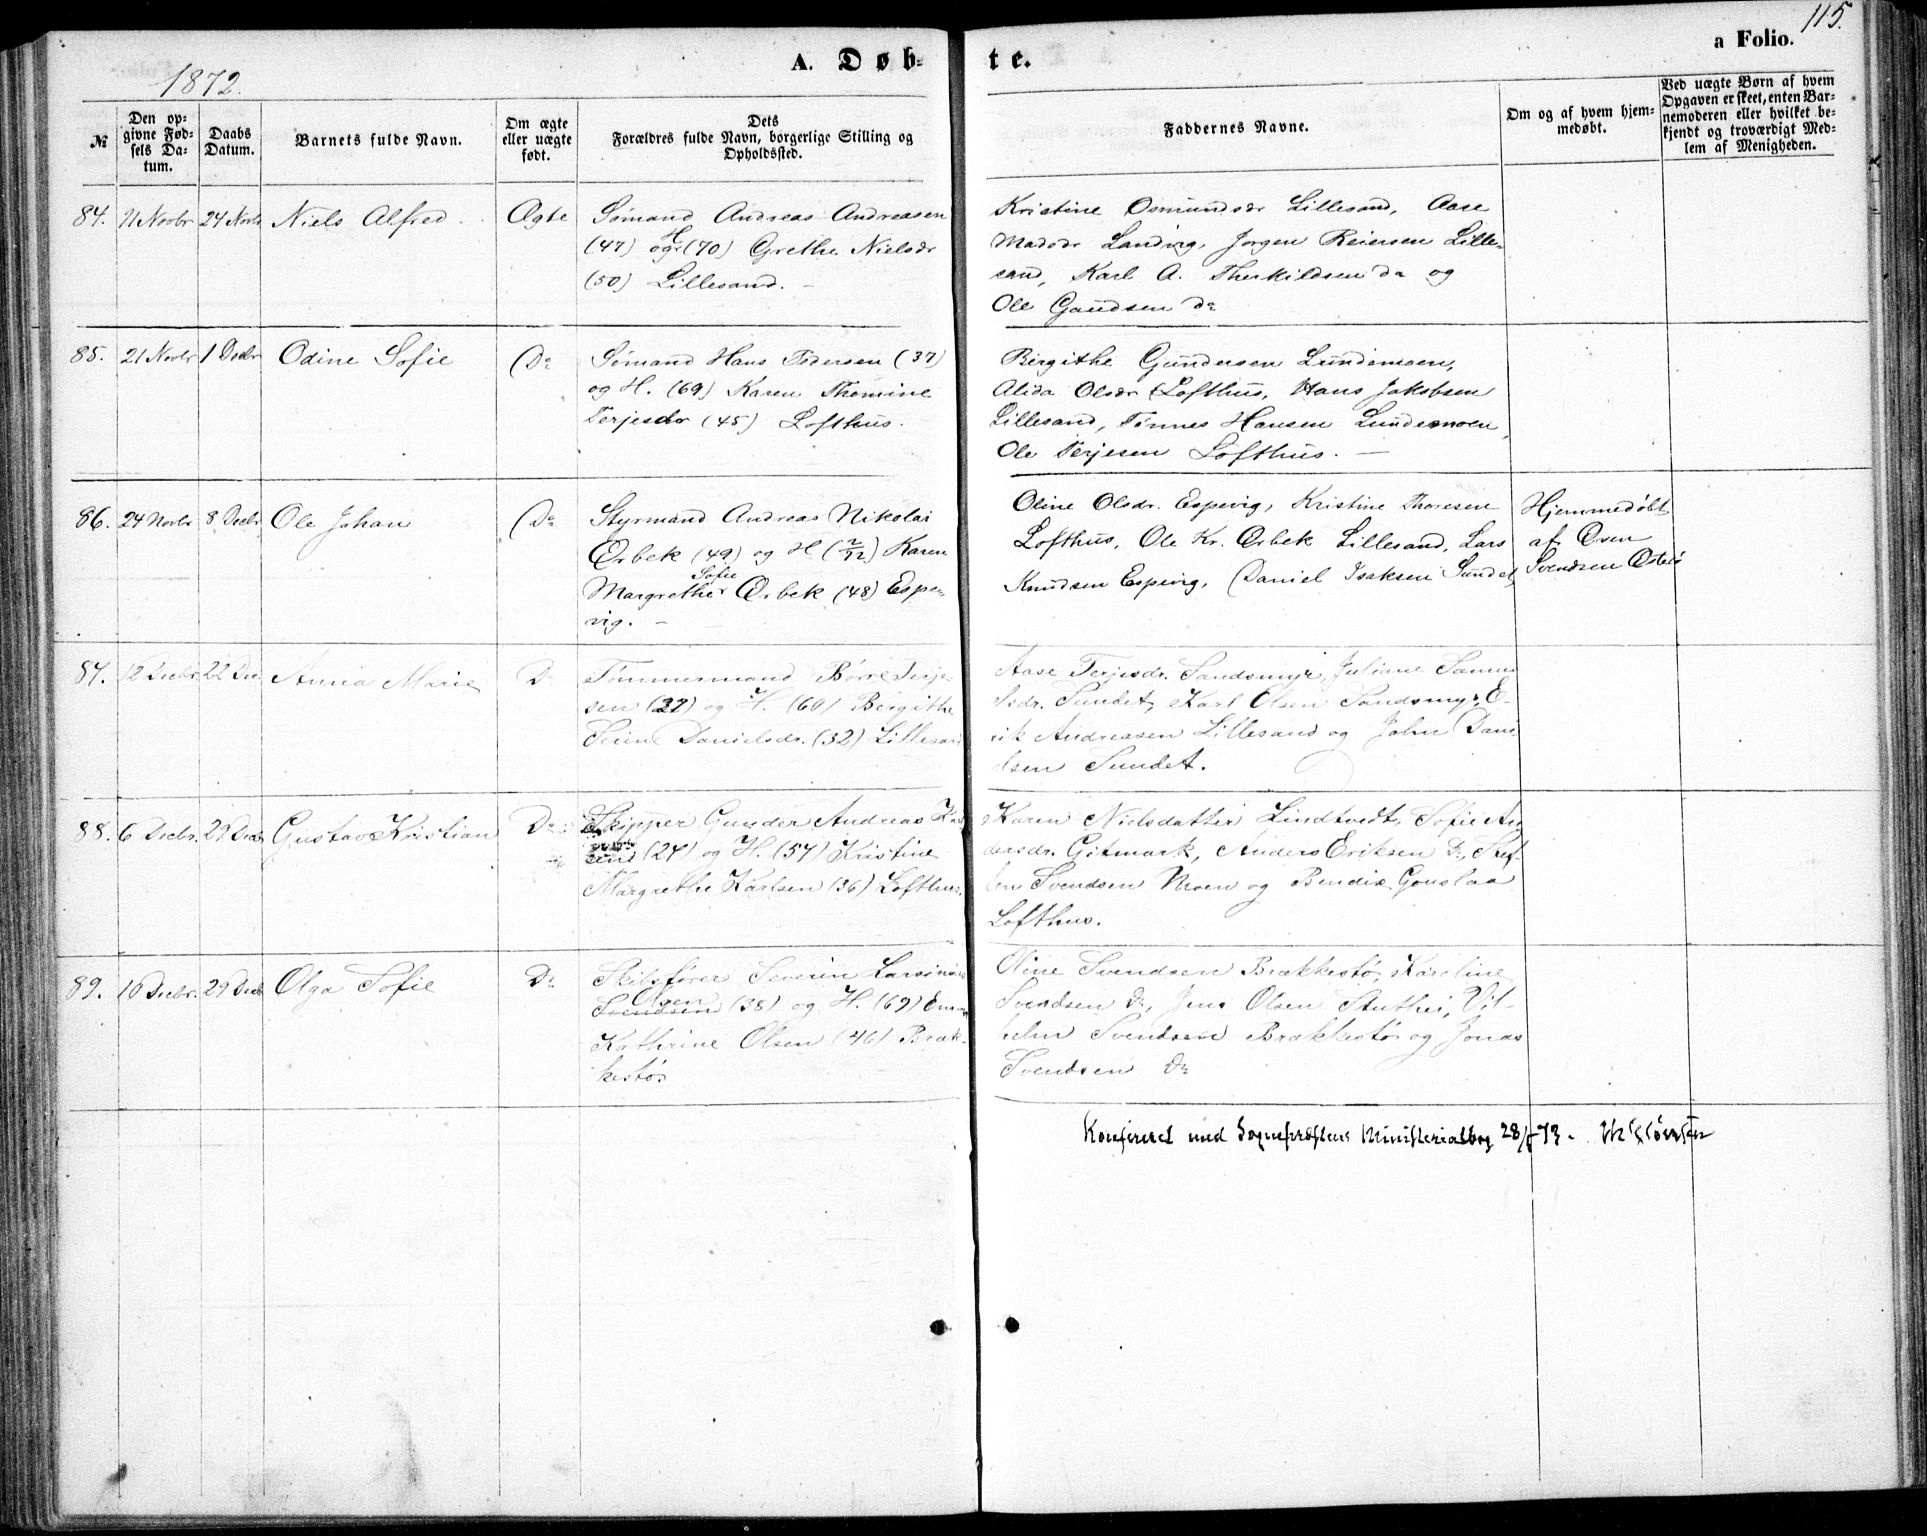 115.
A. Døb-
te.
a Folio.
1872.
№
Den op-
givne Fød-
sels Da-
tum.
Daabs
Datum.
Barnets fulde Navn.
Om ægte
eller uægte
født.
Dets
Forældres fulde Navn, borgerlige Stilling og
Opholdssted.
Faddernes Navne.
Om og af hvem hjem-
medøbt.
Ved uægte Børn af hvem
Opgaven er skeet, enten Bar-
nemoderen eller hvilket be-
kjendt og troværdigt Med-
lem af Menigheden.
84. 11 Novbr 24 Novbr Niels Alfred. Ægte
Sømand Andreas Andreasen
(47) og H (70) Grethe Nielsdr
(50) Lillesand. -
Kristine Osmundsdr Lillesand, Aase
Madsdr Landvig, Jørgen Reiersen Lille-
sand, Karl A. Therkildsen Do og
Ole Gundsen Do
85. 21 Novbr 1 Decbr Odine Sofie Do
Sømand Hans Pedersen (37)
og H. (69) Karen Thomine
Terjesdr (45) Lofthus.
Birgithe Gundersen Lundemoen,
Alida Olsdr Lofthus, Hans Jakobsen
Lillesand, Tønnes Hansen Lundemoen,
Ole Terjesen Lofthus. -
86. 24 Novbr 8 Decbr Ole Johan Do
Styrmand Andreas Nikolai
Ørbek (49) og H (2/72) Karen
Margrethe Sofie Ørbek (48) Espe-
vig. -
Oline Olsdr. Espevig, Kristine Thoresen
Lofthus, Ole Kr. Ørbek Lillesand, Lars
Knudsen Espevig, Daniel Isaksen Sundet,
Hjemmedøbt
af
Svendsen
87. 12 Decbr. 22 Dec. Anna Marie Do
Tømmermand Børre Terje-
sen (37) og H. (60) Bergithe
Serine Danielsdr. (32) Lillesand
Aase Terjesdr. Sandsmyr, Juliane Samu-
elsdr. Sundet, Karl Olsen Sandsmyr, E-
rik Andreasen Lillesand og John Dani-
elsen Sundet.
88. 6 Decbr. 29 Decb Gustav Kristian Do
Skipper Gunder Andreas
(24) og H. (54) Kristine
Margrethe Karlsen (36) Lofthus.
Karen Nielsdatter Lindtvedt, Sofie An-
dersdr. Gitmark, Anders Eriksen Do, Stef-
fen Svendsen Moen og Bendix Gonslaa
Lofthus.
89. 10 Decbr. 29 Decb Olga Sofie Do
Skibsfører Severin Larsinius
Olsen
Svendsen (38) og H. (69) Emma
Kathrine Olsen (46) Bræk-
kestø.
Oline Svendsen Brækkestø, Karoline
Svendsen Do, Jens Olsen Stuthei, Vil-
helm Svendsen Brækkestø og Jonas
Svendsen Do
Konfereret med Sognepræstens Ministerialbog